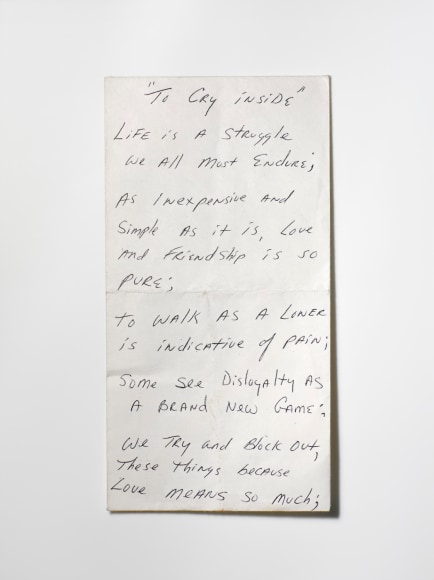 "To Cry inside"
Life is A Struggle
We All Must Endure;
As Inexpensive And
Simple As it is, Love
And Friendship is so
Pure;
To WALK AS A LONER
is indicative of PAIN;
Some See Disloyalty AS
A BRAND New GAME;
We Try and Block Out,
These things because
Love MEANS SO Much;